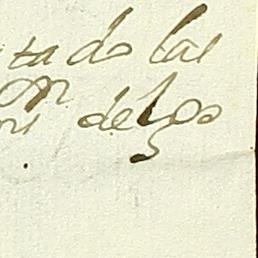 ta do las
on
ni delos